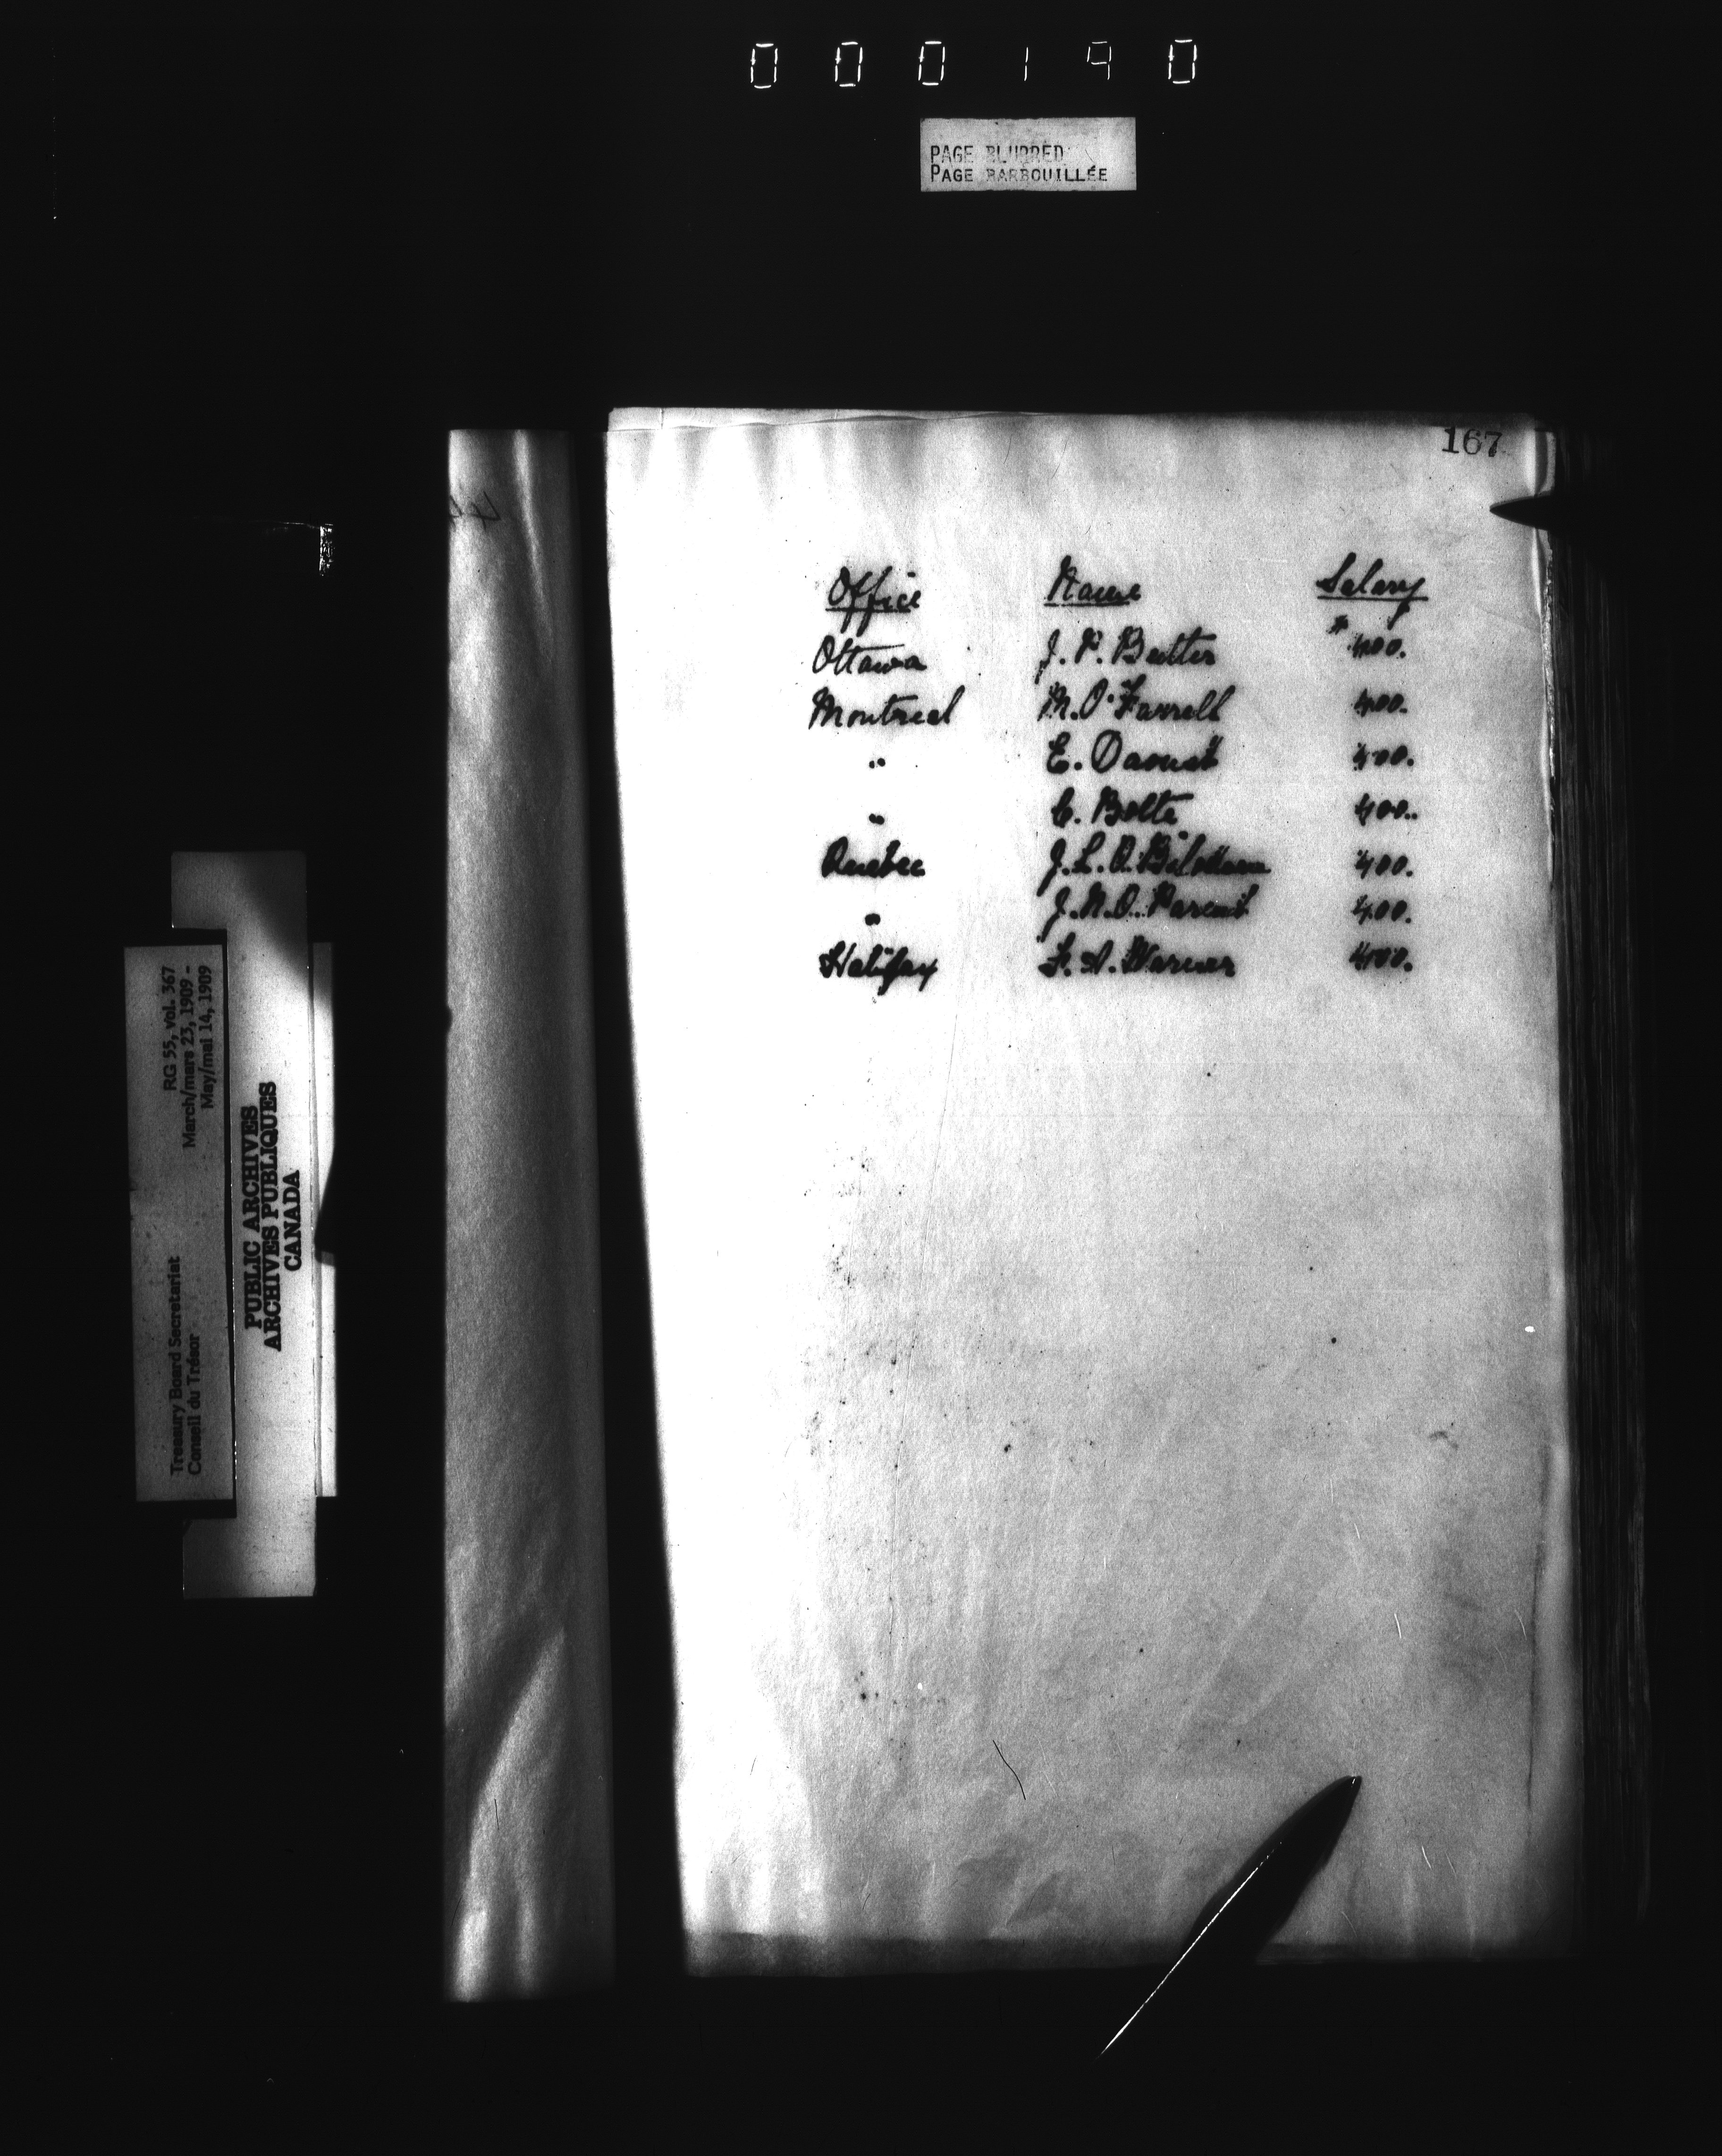 000190
PAGE BLURRED
PAGE BARBOUILLÉE
167
Office Name Salary
Ottawa J. P. Butler $400.
Montreal M. O'Farrell 400.
" E. Daoust 400.
" C. Bolte 400.
Quebec J. L. O. 400.
" J. N. O. Parent 400.
Halifax F. A. Warner 400.
RG 55, vol. 367
March/mars 23, 1909 -
May/mai 14, 1909
Treasury Board Secretariat
Conseil du Trésor
PUBLIC ARCHIVES
ARCHIVES PUBLIQUES
CANADA